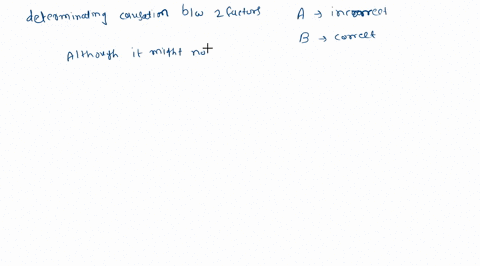 determinating causation b/w 2 factors
A → incorrect
B → correct
Although it might not